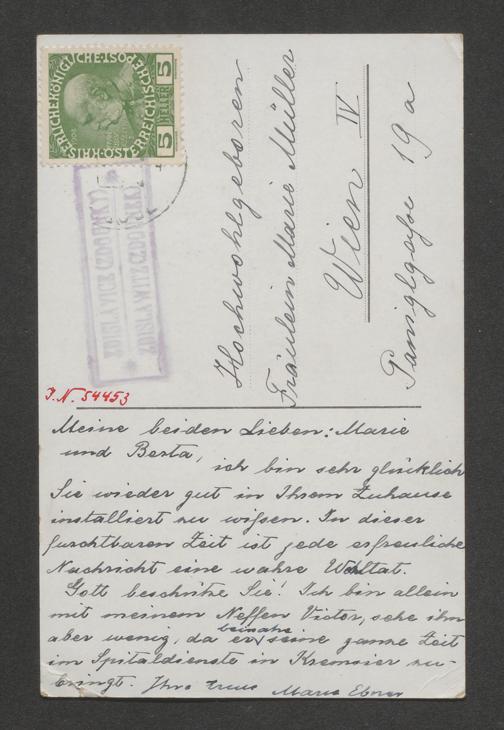 KAISERLICHEKÖNIGLICHE·ÖSTERREICHISCHE·POST·
5 HELLER 5
ZDISLAVICE (ZDOUNKY)
ZDISLAWITZ (ZDOUNEK)
Hochwohlgeboren
Fräulein Marie Müller
Wien IV
Paniglgasse 19 a
J.N. 54453
Meine beiden Lieben: Marie
und Berta, ich bin sehr glücklich
Sie wieder gut in Ihrem Zuhause
installiert zu wißen. In dieser
furchtbaren Zeit ist jede erfreuliche
Nachricht eine wahre Wohltat.
Gott beschütze Sie! Ich bin allein
mit meinem Neffen Victor, sehe ihn
aber wenig, da er beinahe seine ganze Zeit
im Spitaldienste in Kremsier zu-
bringt. Ihre treue Marie Ebner